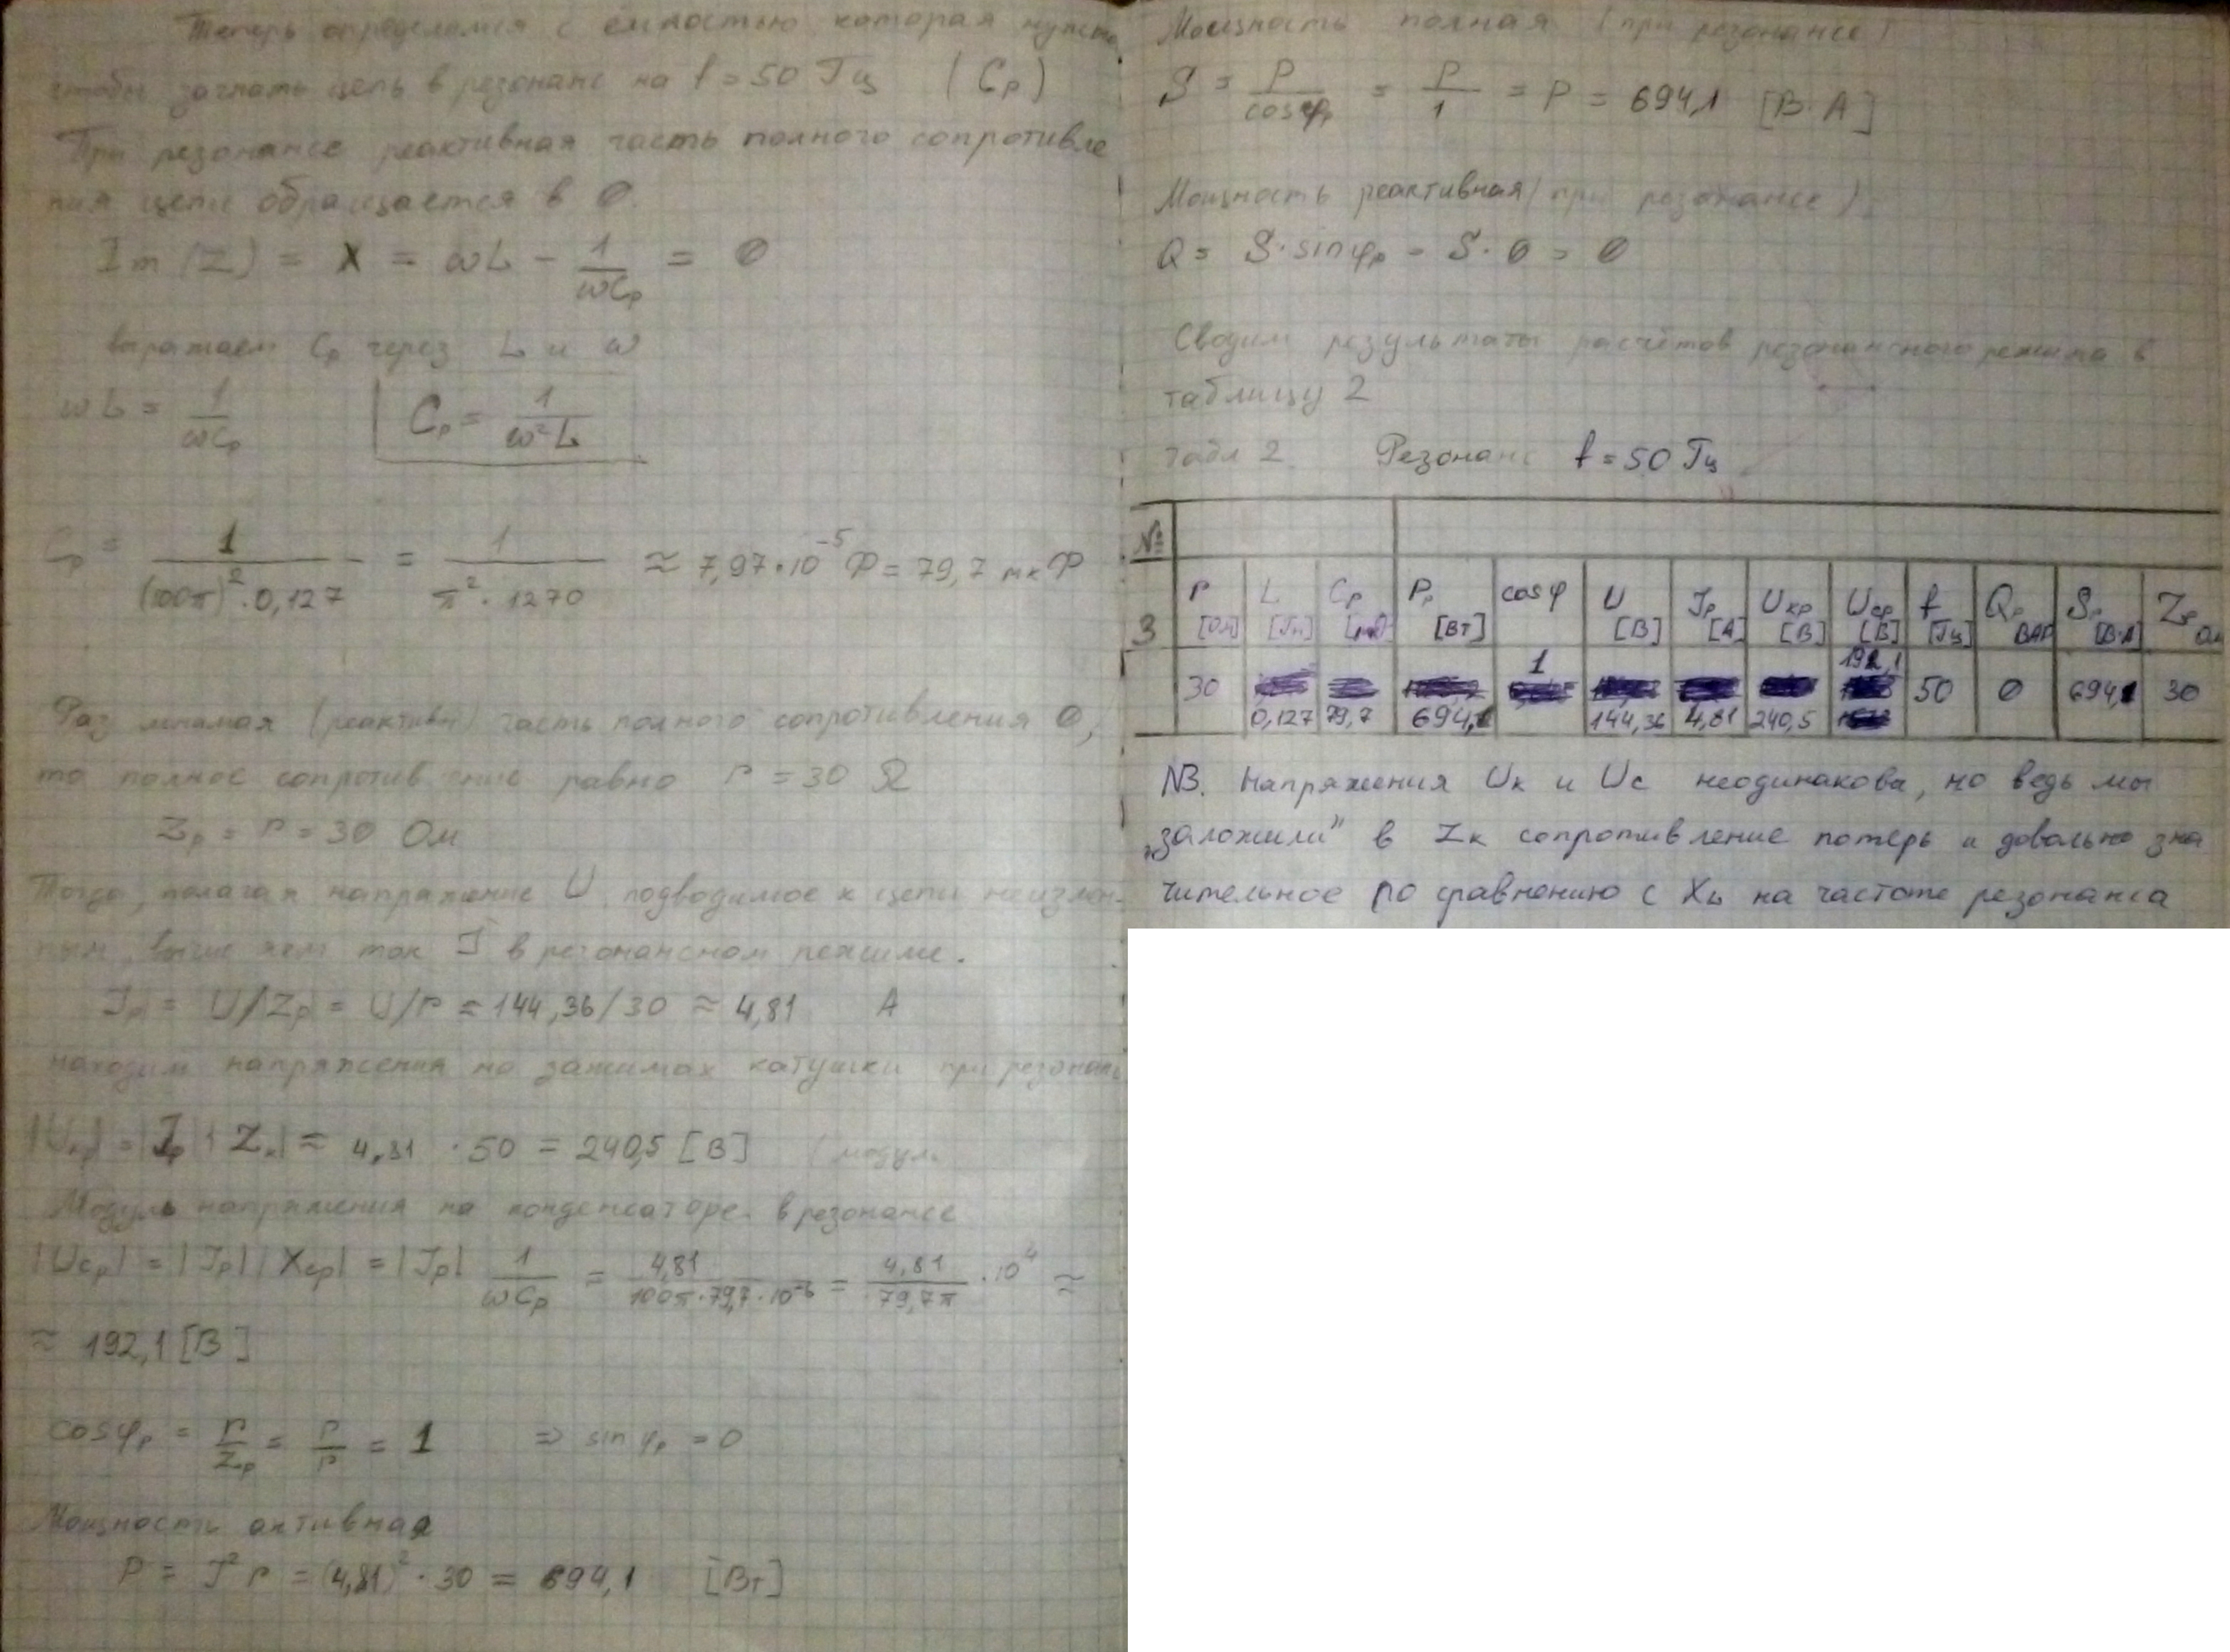 Теперь определимся с ёмкостью которая нужна
чтобы загнать цепь в резонанс на f = 50 Гц (Cр)
При резонансе реактивная часть полного сопротивле
ния цепи обращается в 0.
Im(Z) = X = ωL - 1/ωCр = 0
выражаем Cр через L и ω
ωL = 1/ωCр   Cр = 1/ω²L
Cр = 1/(100π)²·0,127 = 1/π²·1270 ≈ 7,97·10⁻⁵ Ф = 79,7 мкФ
Раз мнимая (реактивн) часть полного сопротивления 0,
то полное сопротивление равно r = 30 Ω
Zр = r = 30 Ом
Тогда, полагая напряжение U, подводимое к цепи неизмен-
ным, ток I в резонансном режиме.
Iр = U/Zр = U/r = 144,36/30 ≈ 4,81 А
находим напряжения на зажимах катушки при резонанс
|Uкр| = |Iр||Zк| = 4,81 · 50 = 240,5 [В] (модул
Модуль напряжения на конденсаторе в резонансе
|Uср| = |Iр||Xср| = |Iр| 1/ωCр = 4,81/100π·79,7·10⁻⁶ = 4,81/79,7π · 10⁴ ≈
≈ 192,1 [В]
cosφр = r/Zр = r/r = 1 ⇒ sin φр = 0
Мощность активная
P = I²r = (4,81)²·30 = 694,1 [Вт]
Мощность полная (при резонансе)
S = P/cosφр = P/1 = P = 694,1 [В·А]
Мощность реактивная (при резонансе)
Q = S·sinφр = S·0 = 0
Сводим результаты расчётов резонансного режима в
таблицу 2
табл 2. Резонанс f = 50 Гц
№
3 r [Ом] L [Гн] Cр [мкФ] Pр [Вт] cosφ U [В] Iр [А] Uкр [В] Uср [В] f [Гц] Qр ВАР Sр [В·А] Zр Ом
30 0,127 79,7 694,1 1 144,36 4,81 240,5 192,1 50 0 694,1 30
NB. Напряжения Uк и Uс неодинакова, но ведь мы
„заложили" в Zк сопротивление потерь и довольно зна
чительное по сравнению с XL на частоте резонанса